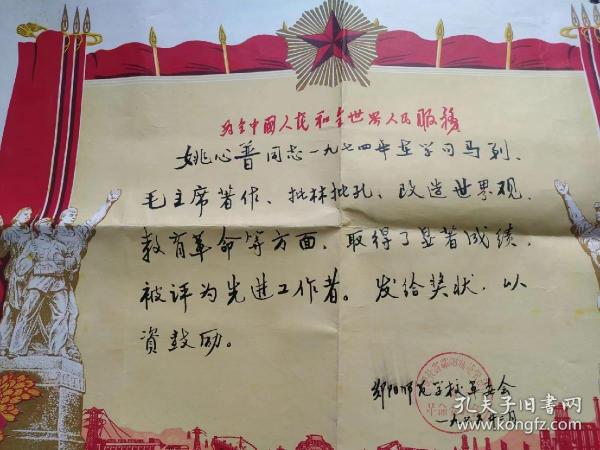 为全中国人民和全世界人民服務
姚心普同志一九七四年在学习马列、
毛主席著作、批林批孔、改造世界观、
教育革命等方面，取得了显著成绩，
被评为先进工作者。发给奖状，以
资鼓励。
郧阳师范学校革委会
一九七五年二月
孔夫子旧书网
www.kongfz.com